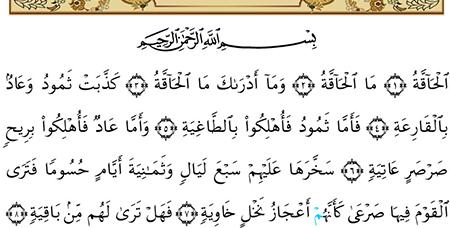 بِسْمِ اللَّهِ الرَّحْمَٰنِ الرَّحِيمِ
الْحَاقَّةُ ﴿١﴾ مَا الْحَاقَّةُ ﴿٢﴾ وَمَا أَدْرَاكَ مَا الْحَاقَّةُ ﴿٣﴾ كَذَّبَتْ ثَمُودُ وَعَادٌ
بِالْقَارِعَةِ ﴿٤﴾ فَأَمَّا ثَمُودُ فَأُهْلِكُوا بِالطَّاغِيَةِ ﴿٥﴾ وَأَمَّا عَادٌ فَأُهْلِكُوا بِرِيحٍ
صَرْصَرٍ عَاتِيَةٍ ﴿٦﴾ سَخَّرَهَا عَلَيْهِمْ سَبْعَ لَيَالٍ وَثَمَانِيَةَ أَيَّامٍ حُسُومًا فَتَرَى
الْقَوْمَ فِيهَا صَرْعَىٰ كَأَنَّهُمْ أَعْجَازُ نَخْلٍ خَاوِيَةٍ ﴿٧﴾ فَهَلْ تَرَىٰ لَهُم مِّن بَاقِيَةٍ ﴿٨﴾